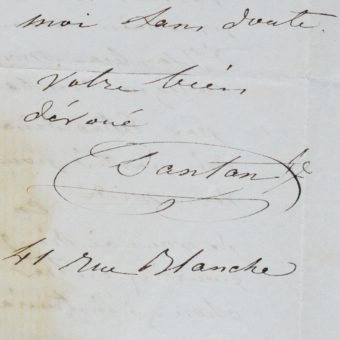 moi sans doute.
votre bien
dévoué
Santan
41 rue Blanche